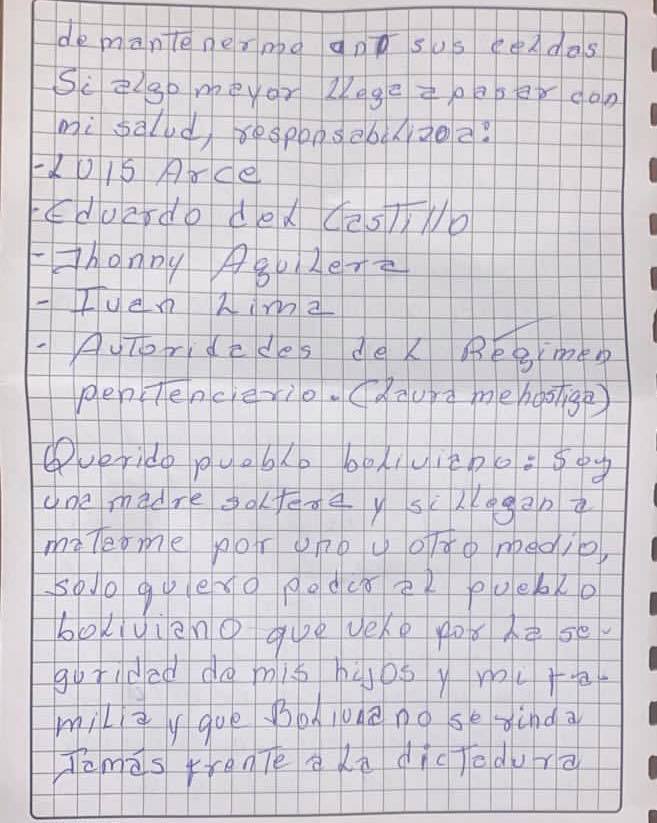 de mantenerme ant sus celdas
Si algo mayor llege a pasar con
mi salud, responsabilizo a:
- LUIS Arce
- Eduardo del Castillo
- Jhonny Aguilera
- Ivan Lima
- Autoridades del Régimen
penitenciario. (Laura me hostiga)
Querido pueblo boliviano: Soy
una madre soltera y si llegan a
matarme por uno u otro medio,
solo quiero pedir al pueblo
boliviano que vele por la se-
guridad de mis hijos y mi fa-
milia y que Bolivia no se rinda
Jamás frente a la dictadura